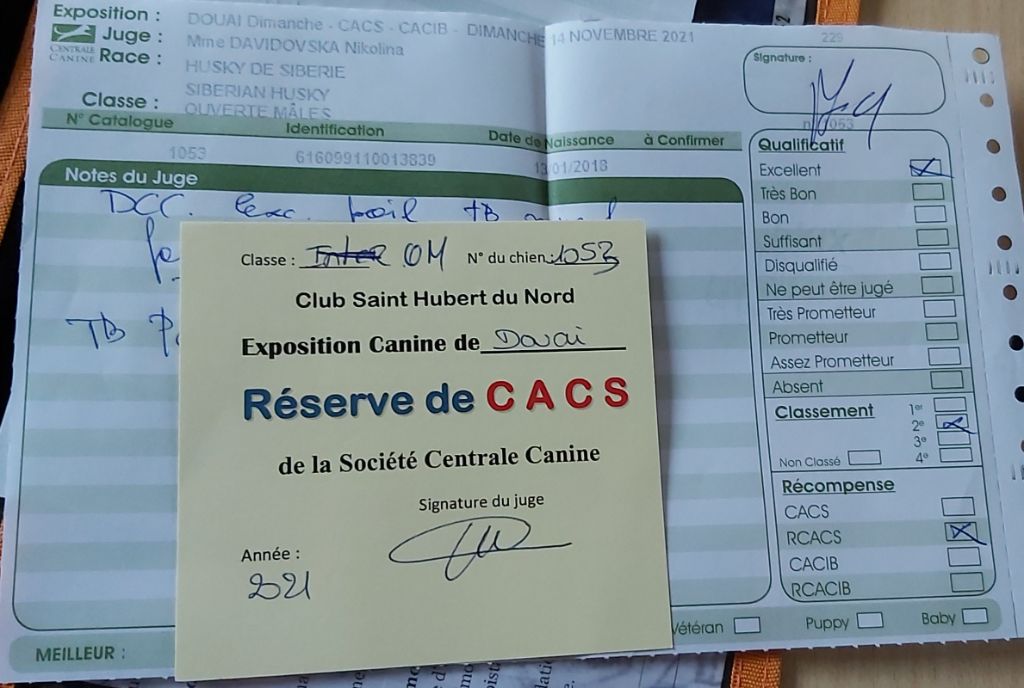 Exposition : DOUAI Dimanche - CACS - CACIB - DIMANCHE 14 NOVEMBRE 2021
229
CENTRALE CANINE
Juge : Mme DAVIDOVSKA Nikolina
Race : HUSKY DE SIBERIE
SIBERIAN HUSKY
Classe : OUVERTE MÂLES
N° Catalogue Identification Date de Naissance à Confirmer
1053 616099110013839 13/01/2018
Notes du Juge
DCC. exc. poil TB
TB
Classe : Inter OM N° du chien: 1053
Club Saint Hubert du Nord
Exposition Canine de Douai
Réserve de CACS
de la Société Centrale Canine
Signature du juge
Année :
2021
MEILLEUR :
Vétéran
Puppy
Baby
Signature :
1053
Qualificatif
Excellent
Très Bon
Bon
Suffisant
Disqualifié
Ne peut être jugé
Très Prometteur
Prometteur
Assez Prometteur
Absent
Classement 1er
2e
3e
Non Classé 4e
Récompense
CACS
RCACS
CACIB
RCACIB